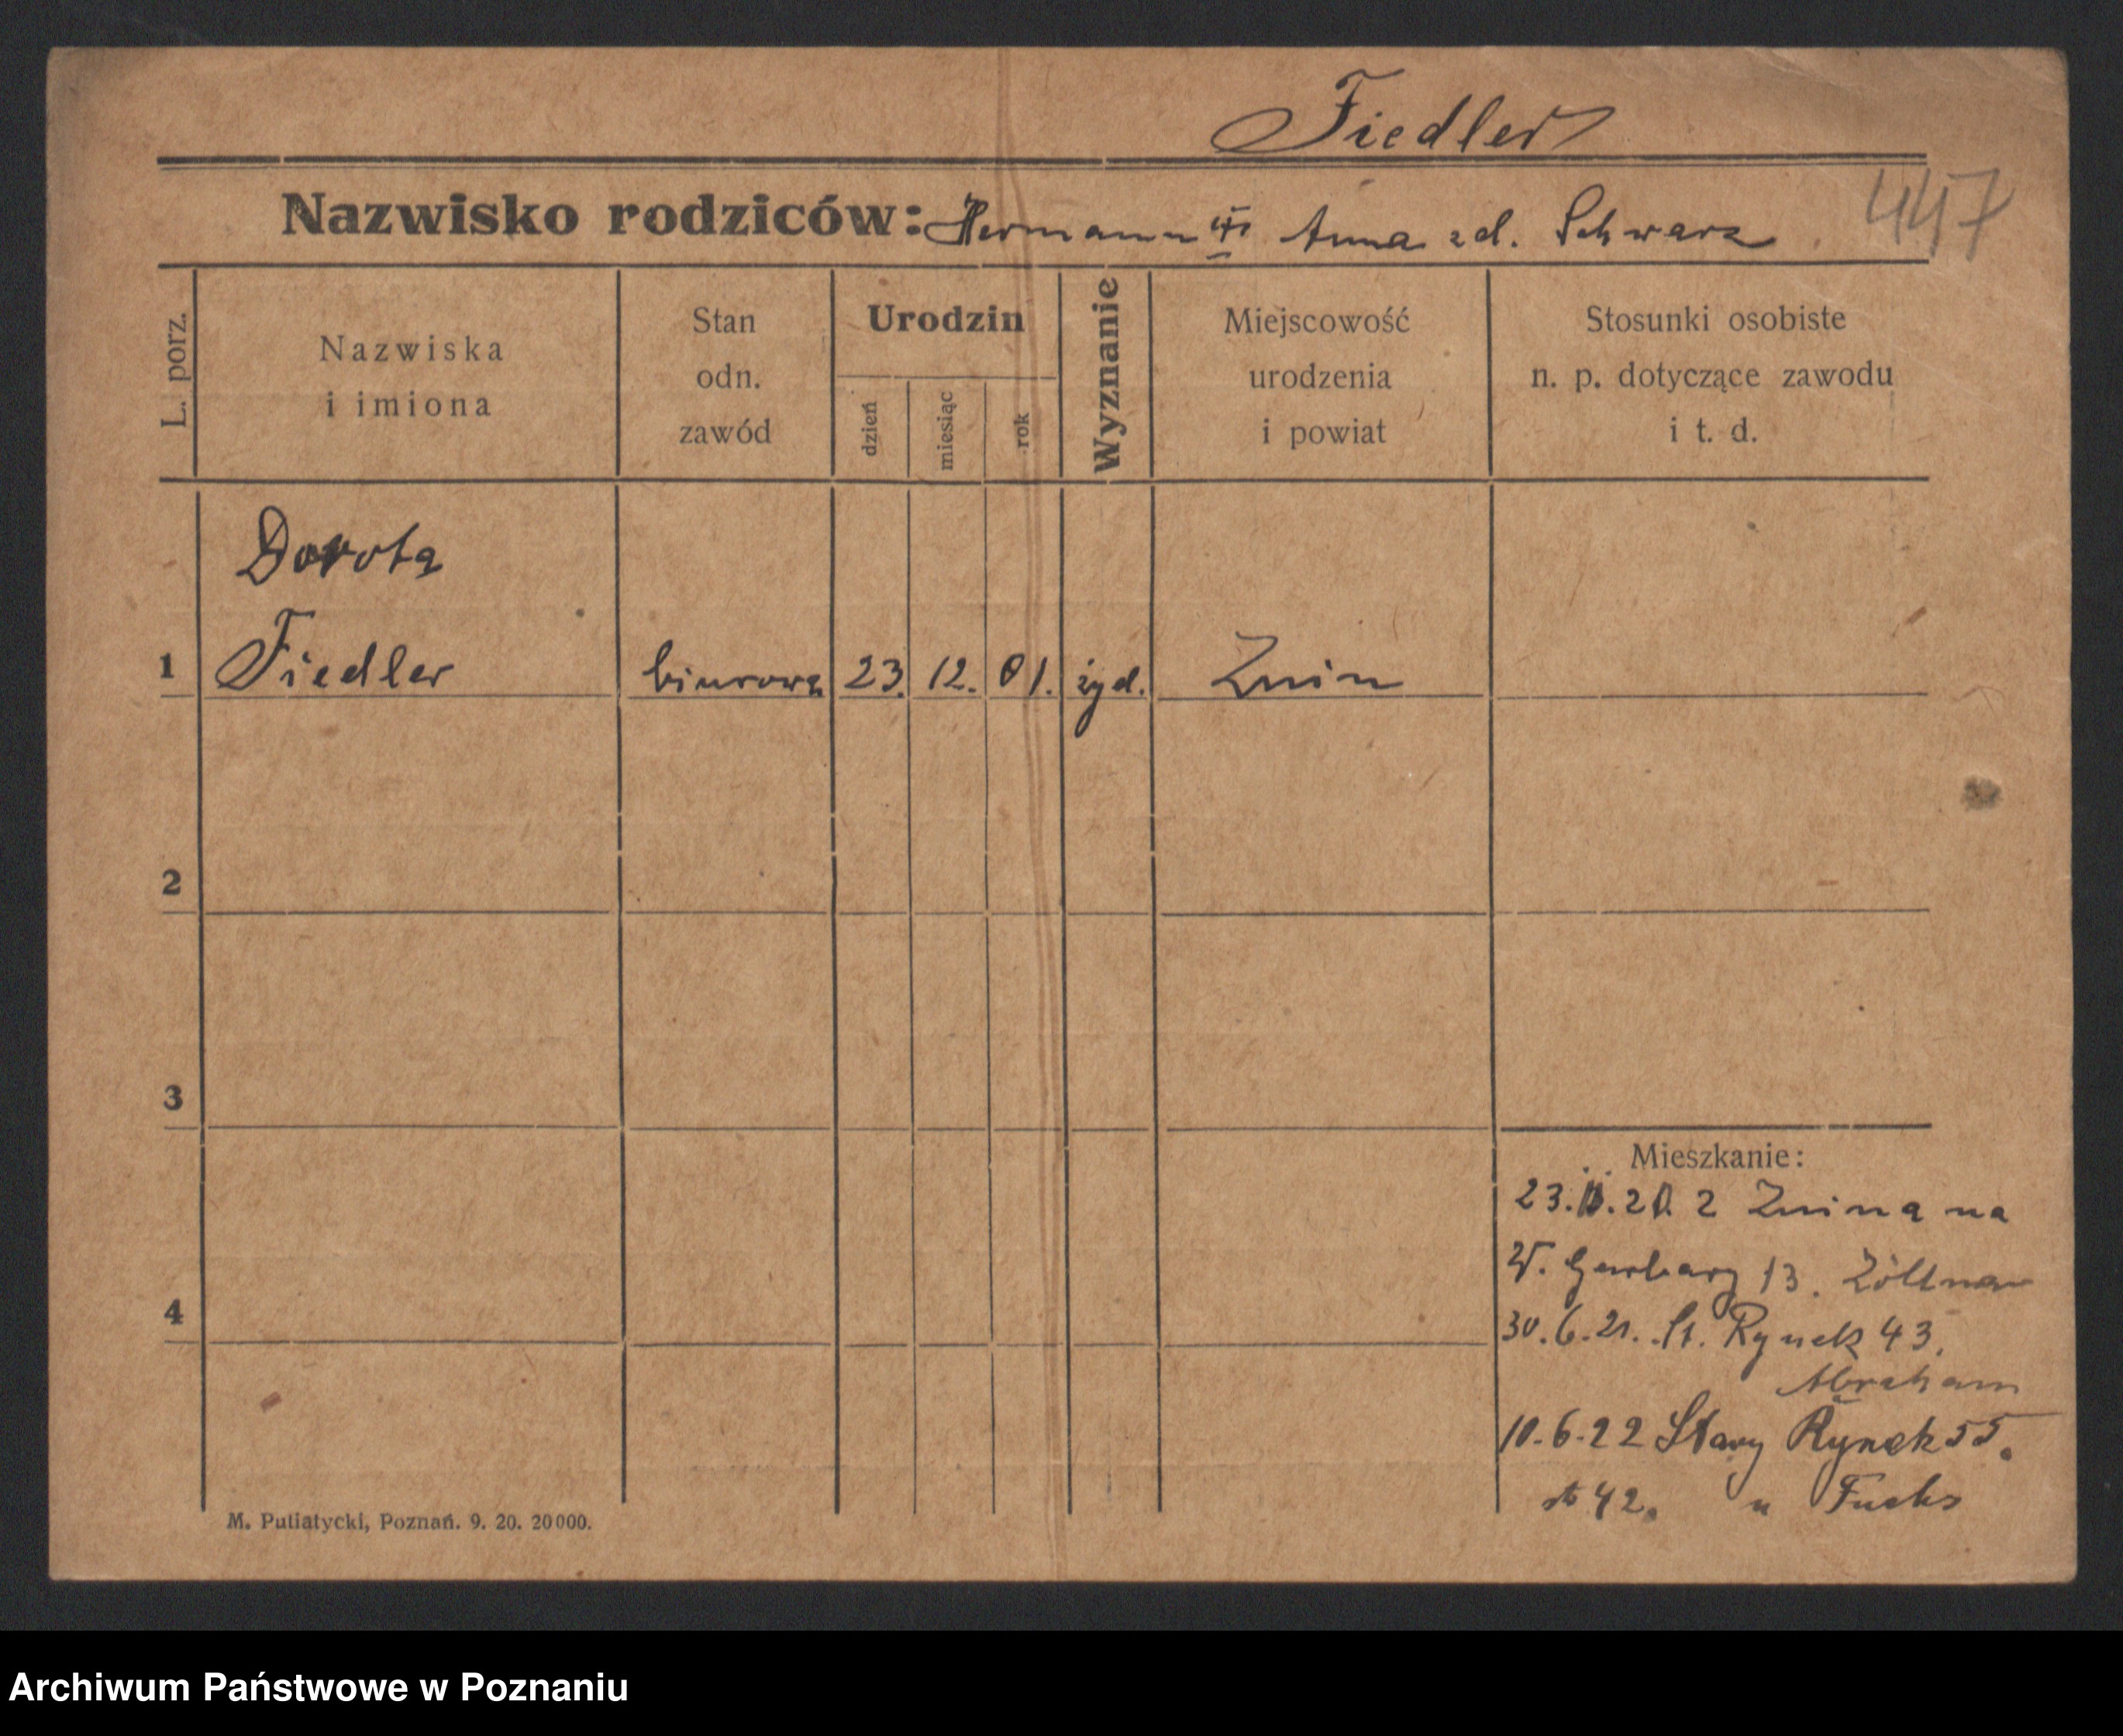 Fiedler
Nazwisko rodziców: Hermann Anna zd. Schwarz
447
L. porz.
Nazwiska
i imiona
Stan
odn.
zawód
Urodzin
dzień
miesiąc
rok
Wyznanie
Miejscowość
urodzenia
i powiat
Stosunki osobiste
n. p. dotyczące zawodu
i t. d.
Dorota
1 Fiedler biurowa 23. 12. 01. żyd. Znin
2
3
4
Mieszkanie:
23. 20. z Znina na
W. Garbary 13.
30.6.21. St. Rynek 43.
Abraham
10.6.22 Stary Rynek 55.
42. u Fuchs
M. Putiatycki, Poznań. 9. 20. 20000.
Archiwum Państwowe w Poznaniu